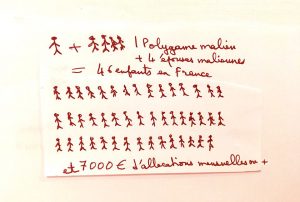 + 1 Polygame malien
+ 4 épouses maliennes
= 46 enfants en France
et 7000 € d'allocations mensuelles ou +